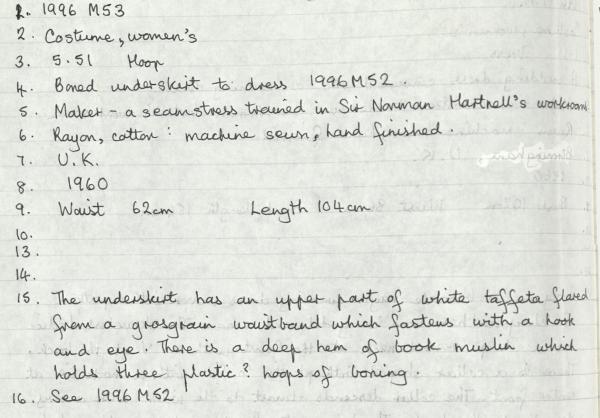 1. 1996 M53
2. Costume, women's
3. 5.51 Hoop
4. Boned underskirt to dress 1996M52.
5. Maker - a seamstress trained in Sir Norman Hartnell's workroom
6. Rayon, cotton : machine sewn, hand finished.
7. U.K.
8. 1960
9. Waist 62cm Length 104cm
10.
13.
14.
15. The underskirt has an upper part of white taffeta flared
from a grosgrain waistband which fastens with a hook
and eye. There is a deep hem of book muslin which
holds three plastic? hoops of boning.
16. See 1996M52